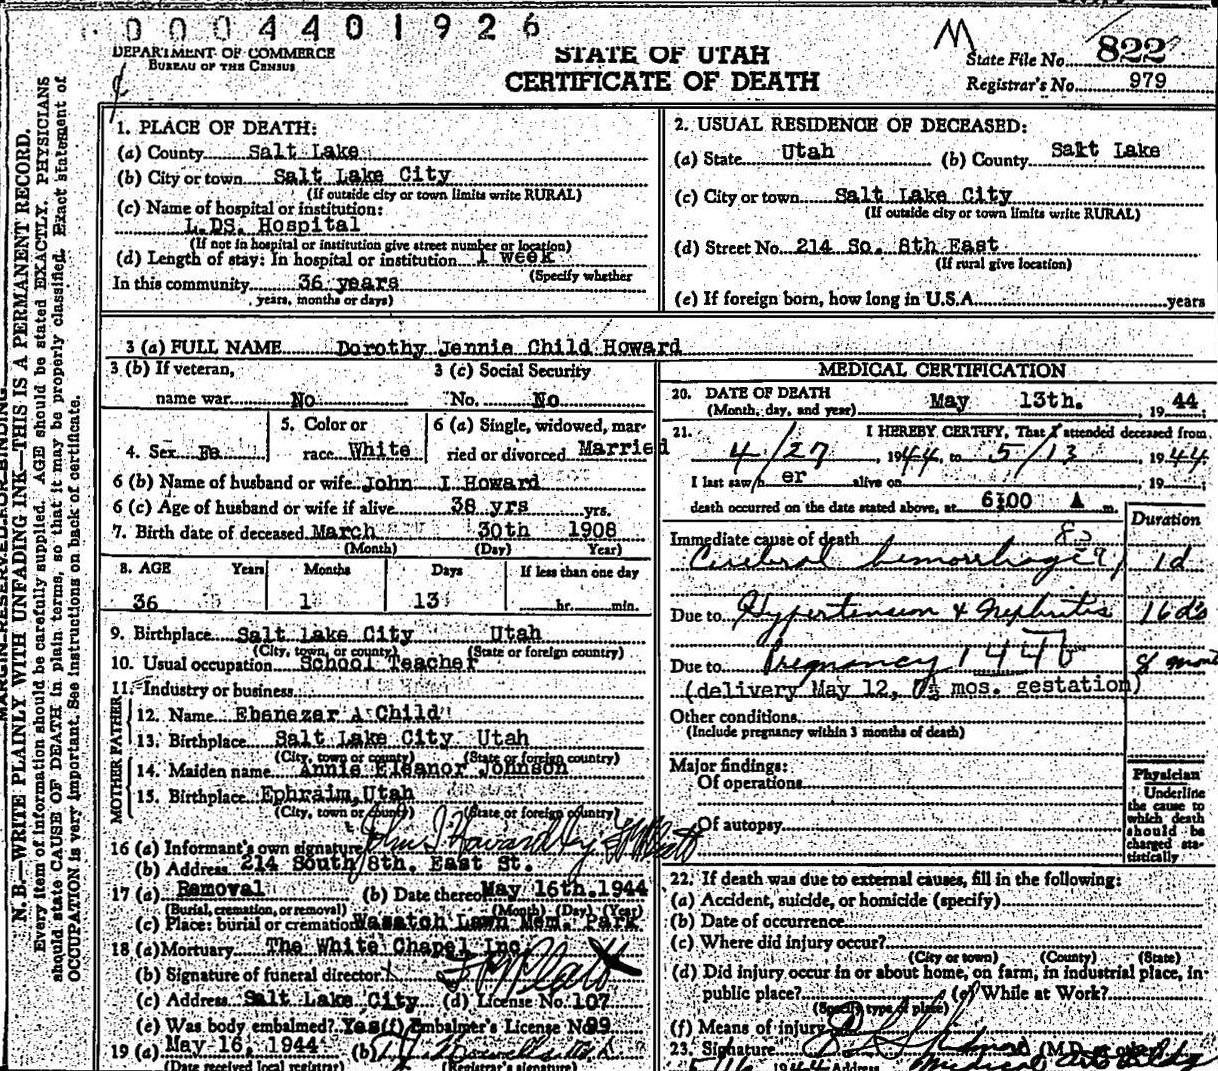 0 0 0 4 4 0 1 9 2 6
DEPARTMENT OF COMMERCE
BUREAU OF THE CENSUS
STATE OF UTAH
CERTIFICATE OF DEATH
M
State File No. 822
Registrar's No. 979
MARGIN RESERVED FOR BINDING
N. B.—WRITE PLAINLY WITH UNFADING INK—THIS IS A PERMANENT RECORD.
Every item of information should be carefully supplied. AGE should be stated EXACTLY. PHYSICIANS
should state CAUSE OF DEATH in plain terms, so that it may be properly classified. Exact statement of
OCCUPATION is very important. See instructions on back of certificate.
1. PLACE OF DEATH:
(a) County Salt Lake
(b) City or town Salt Lake City
(If outside city or town limits write RURAL)
(c) Name of hospital or institution:
L.DS. Hospital
(If not in hospital or institution give street number or location)
(d) Length of stay: In hospital or institution 1 week
(Specify whether
In this community 36 years
years, months or days)
2. USUAL RESIDENCE OF DECEASED:
(a) State Utah (b) County Salt Lake
(c) City or town Salt Lake City
(If outside city or town limits write RURAL)
(d) Street No. 214 So. 8th East
(If rural give location)
(e) If foreign born, how long in U.S.A. years
3 (a) FULL NAME Dorothy Jennie Child Howard
3 (b) If veteran, 3 (c) Social Security
name war No No. No
4. Sex Fe 5. Color or race White 6 (a) Single, widowed, married or divorced Married
6 (b) Name of husband or wife John I Howard
6 (c) Age of husband or wife if alive 38 yrs yrs.
7. Birth date of deceased March 30th 1908
(Month) (Day) Year)
8. AGE Years Months Days If less than one day
36 1 13 hr. min.
9. Birthplace Salt Lake City Utah
(City, town, or county) (State or foreign country)
10. Usual occupation School Teacher
11. Industry or business
FATHER
12. Name Ebenezer A Child
13. Birthplace Salt Lake City Utah
(City, town or county) (State or foreign country)
MOTHER
14. Maiden name Annie Eleanor Johnson
15. Birthplace Ephraim, Utah
(City, town or county) (State or foreign country)
16 (a) Informant's own signature John I Howard by
(b) Address 214 South 8th. East St.
17 (a) Removal (b) Date thereof May 16th. 1944
(Burial, cremation, or removal) (Month) (Day) (Year)
(c) Place: burial or cremation Wasatch Lawn Mem. Park
18 (a) Mortuary The White Chapel Inc
(b) Signature of funeral director
(c) Address Salt Lake City (d) License No. 107
(e) Was body embalmed? Yes (f) Embalmer's License No 99
19 (a) May 16, 1944 (b)
(Date received local registrar) (Registrar's signature)
MEDICAL CERTIFICATION
20. DATE OF DEATH May 13th. , 19 44
(Month, day, and year)
21. I HEREBY CERTIFY, That I attended deceased from
4/27 , 1944, to 5/13 1944
I last saw h er alive on , 19
death occurred on the date stated above, at 6:00 A m.
Duration
Immediate cause of death
Cerebral hemorrhage 1d
Due to Hypertension & Nephritis 16 d's
Due to Pregnancy
(delivery May 12, 7½ mos. gestation)
Other conditions
(Include pregnancy within 3 months of death)
Major findings:
Of operations
Of autopsy
Physician
Underline
the cause to
which death
should be
charged sta-
tistically
22. If death was due to external causes, fill in the following:
(a) Accident, suicide, or homicide (specify)
(b) Date of occurrence
(c) Where did injury occur?
(City or town) (County) (State)
(d) Did injury occur in or about home, on farm, in industrial place, in
public place? (e) While at Work?
(Specify type of place)
(f) Means of injury
23. Signature (M.D. or other)
1944 Address Medical Arts Bldg